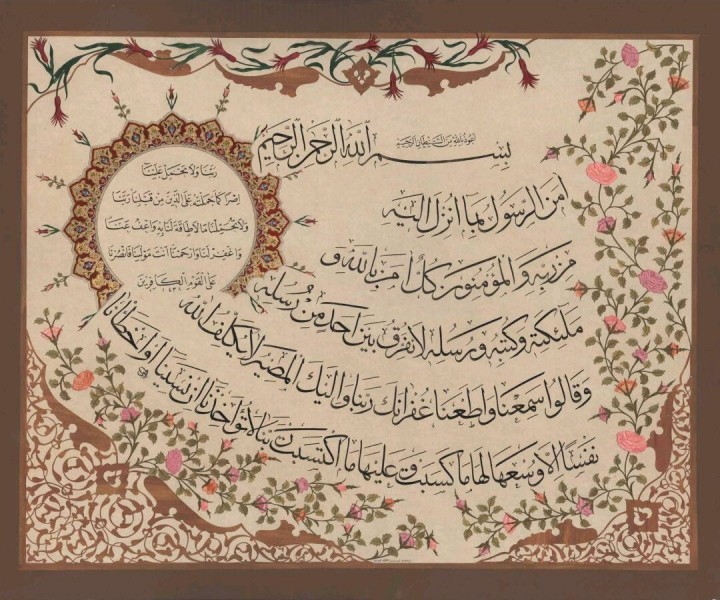 اعوذ بالله من الشيطان الرجيم
بسم الله الرحمن الرحيم
امن الرسول بما انزل اليه
من ربه والمؤمنون كل امن بالله و
ملئكته وكتبه ورسله لا نفرق بين احد من رسله
وقالوا سمعنا واطعنا غفرانك ربنا واليك المصير لا يكلف الله
نفسا الا وسعها لها ما كسبت وعليها ما اكتسبت ربنا لا تؤاخذنا ان نسينا او اخطأنا
ربنا ولا تحمل علينا
اصرا كما حملته على الذين من قبلنا ربنا
ولا تحملنا ما لا طاقة لنا به واعف عنا
واغفر لنا وارحمنا انت مولينا فانصرنا
على القوم الكافرين